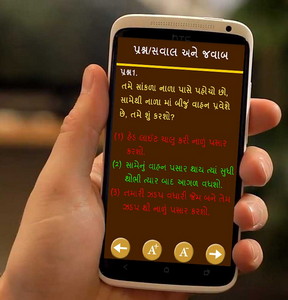 hTC
પ્રશ્ન/સવાલ અને જવાબ
પ્રશ્ન1.
તમે સાંકળા નાળા પાસે પહોચો છો,
સામેથી નાળા માં બીજુ વાહન પ્રવેશે
છે, તમે શું કરશો?
(1) હેડ લાઇટ ચાલુ કરી નાળુ પસાર
કરશો.
(2) સામેનું વાહન પસાર થાય ત્યાં સુધી
થોભી ત્યાર બાદ આગળ વધશો.
(3) તમારી ઝડપ વધારી જેમ બને તેમ
ઝડપ થી નાળુ પસાર કરશો.
A+
A-